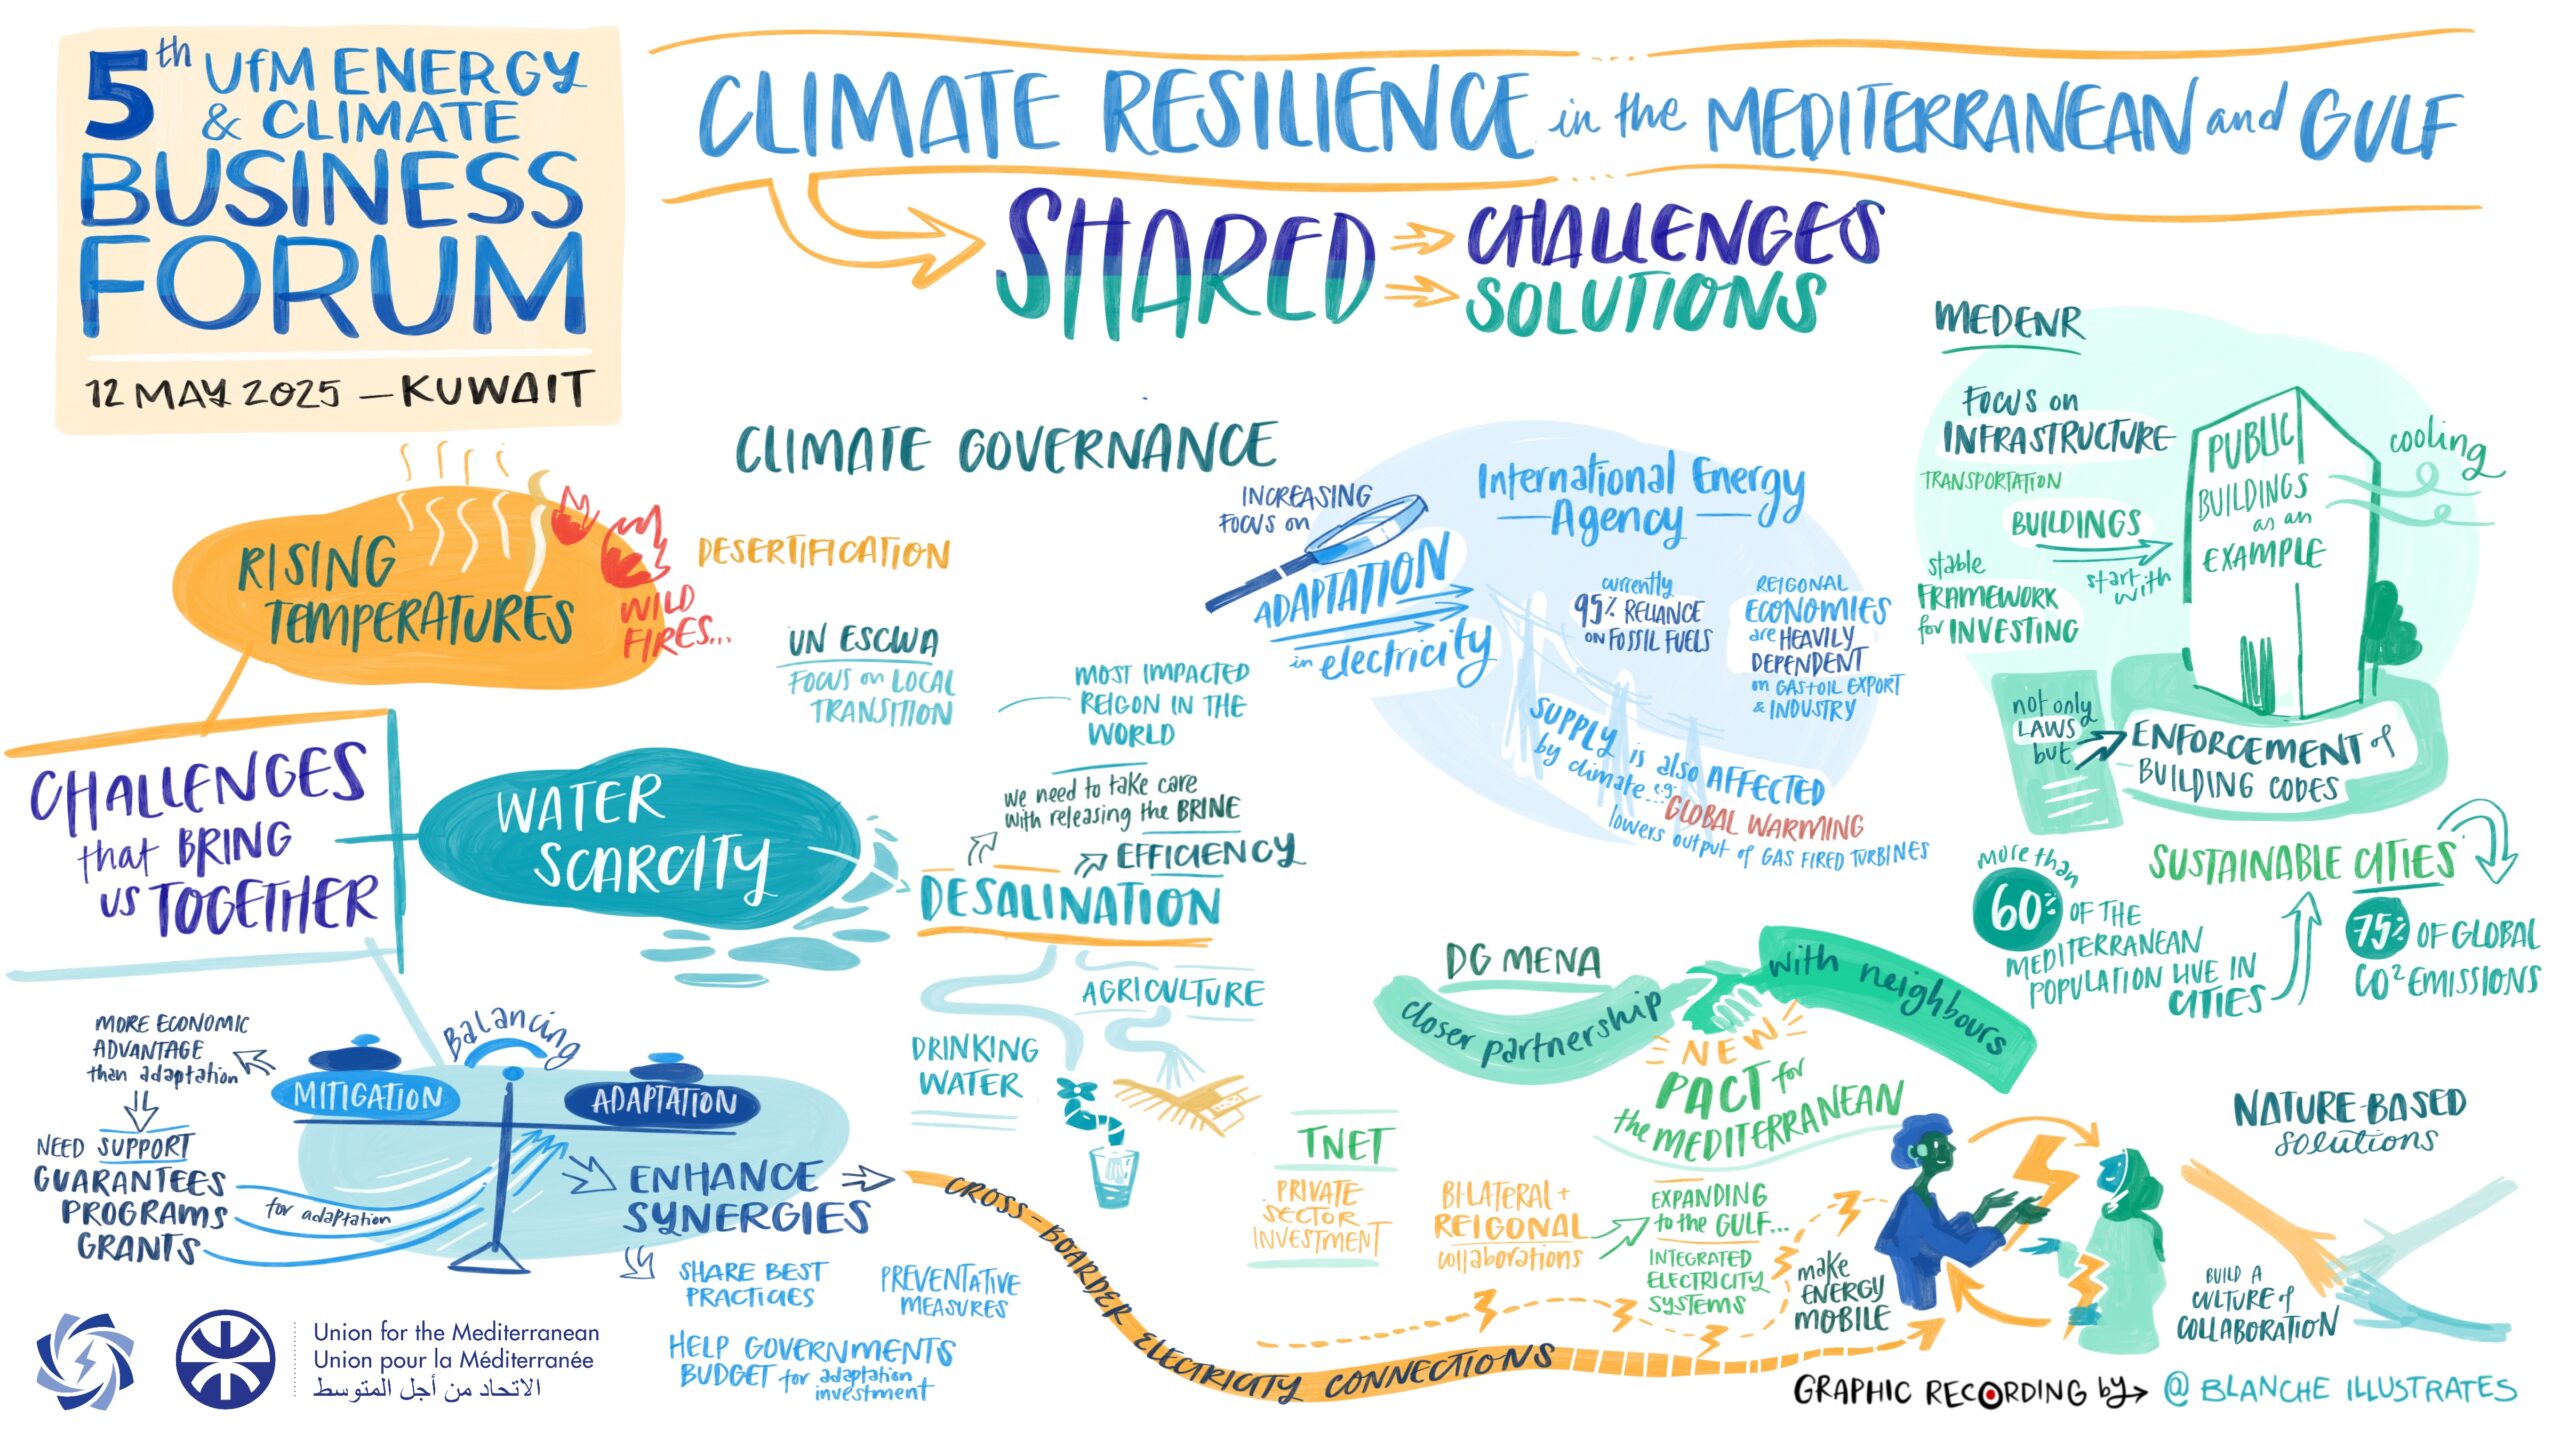 5th UfM ENERGY
& CLIMATE
BUSINESS
FORUM
12 MAY 2025 – KUWAIT
CLIMATE RESILIENCE in the MEDITERRANEAN and GULF
SHARED
CHALLENGES
SOLUTIONS
CLIMATE GOVERNANCE
RISING
TEMPERATURES
WILD
FIRES...
DESERTIFICATION
UN ESCWA
FOCUS on LOCAL
TRANSITION
MOST IMPACTED
REIGON IN THE
WORLD
CHALLENGES
that BRING
US TOGETHER
WATER
SCARCITY
we need to take care
with releasing the BRINE
EFFICIENCY
DESALINATION
AGRICULTURE
DRINKING
WATER
MORE ECONOMIC
ADVANTAGE
than adaptation
NEED SUPPORT
GUARANTEES
PROGRAMS
GRANTS
for adaptation
Balancing
MITIGATION
ADAPTATION
ENHANCE
SYNERGIES
SHARE BEST
PRACTICES
PREVENTATIVE
MEASURES
HELP GOVERNMENTS
BUDGET for adaptation
investment
CROSS-BOARDER ELECTRICITY CONNECTIONS
INCREASING
FOCUS on
ADAPTATION
in electricity
International Energy
Agency
currently
95% RELIANCE
ON FOSSIL FUELS
REIGONAL
ECONOMIES
are HEAVILY
DEPENDENT
on GAS+OIL EXPORT
& INDUSTRY
SUPPLY is also AFFECTED
by climate... e.g.
GLOBAL WARMING
lowers output of GAS FIRED TURBINES
MEDENR
FOCUS on
INFRASTRUCTURE
TRANSPORTATION
BUILDINGS
start with
stable
FRAMEWORK
for INVESTING
PUBLIC
BUILDINGS
as an
EXAMPLE
cooling
not only
LAWS
but
ENFORCEMENT of
BUILDING CODES
SUSTAINABLE CITIES
more than
60% OF THE
MEDITERRANEAN
POPULATION LIVE IN
CITIES
75% OF GLOBAL
CO² EMISSIONS
DG MENA
closer partnership
with neighbours
NEW
PACT for
the MEDITERRANEAN
TNET
PRIVATE
SECTOR
INVESTMENT
BI-LATERAL +
REIGONAL
collaborations
EXPANDING
to the GULF...
INTEGRATED
ELECTRICITY
SYSTEMS
make
ENERGY
MOBILE
NATURE-BASED
solutions
BUILD A
CULTURE of
COLLABORATION
Union for the Mediterranean
Union pour la Méditerranée
الاتحاد من أجل المتوسط
GRAPHIC RECORDING by → @ BLANCHE ILLUSTRATES